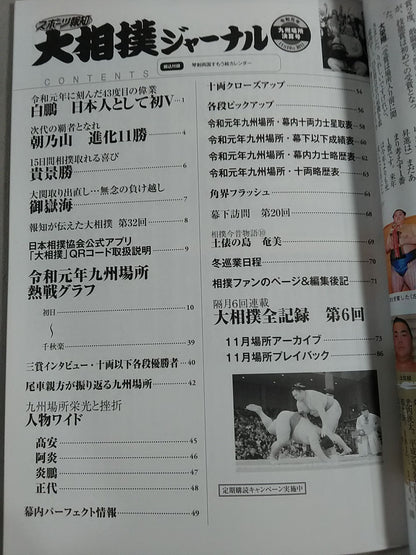 スポーツ報知
大相撲ジャーナル
令和元年
九州場所
決算号
綴込付録 琴剣両国すもう絵カレンダー
CONTENTS
令和元年に刻んだ43度目の偉業
白鵬 日本人として初V 1
次代の覇者となれ
朝乃山 進化11勝 4
15日間相撲取れる喜び
貴景勝 6
大関取り出直し…無念の負け越し
御嶽海 7
報知が伝えた大相撲 第32回 8
日本相撲協会公式アプリ
「大相撲」QRコード取扱説明 9
令和元年九州場所
熱戦グラフ
初日 10
〜
千秋楽 39
三賞インタビュー・十両以下各段優勝者 40
尾車親方が振り返る九州場所 42
九州場所栄光と挫折
人物ワイド
高安 45
阿炎 46
炎鵬 47
正代 48
幕内パーフェクト情報 49
十両クローズアップ 54
各段ピックアップ
令和元年九州場所・幕内十両力士星取表
令和元年九州場所・幕下以下成績表
令和元年九州場所・幕内力士略歴表 62
令和元年九州場所・十両略歴表
角界フラッシュ
幕下訪問 第20回 68
相撲今昔物語⑩
土俵の島 奄美 69
冬巡業日程 70
相撲ファンのページ&編集後記 71
隔月6回連載
大相撲全記録 第6回
11月場所アーカイブ 75
11月場所プレイバック 86
定期購読キャンペーン実施中